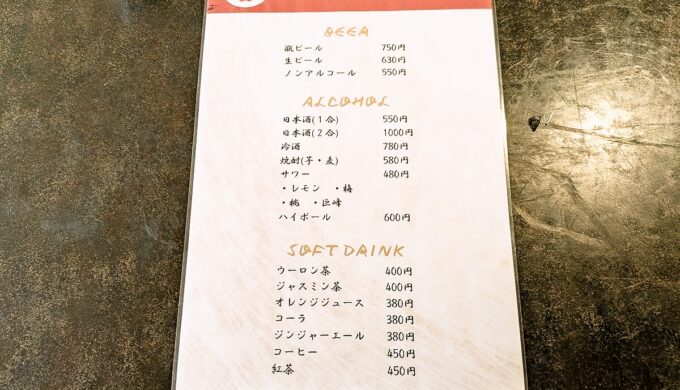 BEER
瓶ビール 750円
生ビール 630円
ノンアルコール 550円
ALCOHOL
日本酒(1合) 550円
日本酒(2合) 1000円
冷酒 780円
焼酎(子・麦) 580円
サワー 480円
・レモン ・梅
・桃 ・巨峰
ハイボール 600円
SOFT DRINK
ウーロン茶 400円
ジャスミン茶 400円
オレンジジュース 380円
コーラ 380円
ジンジャーエール 380円
コーヒー 450円
紅茶 450円